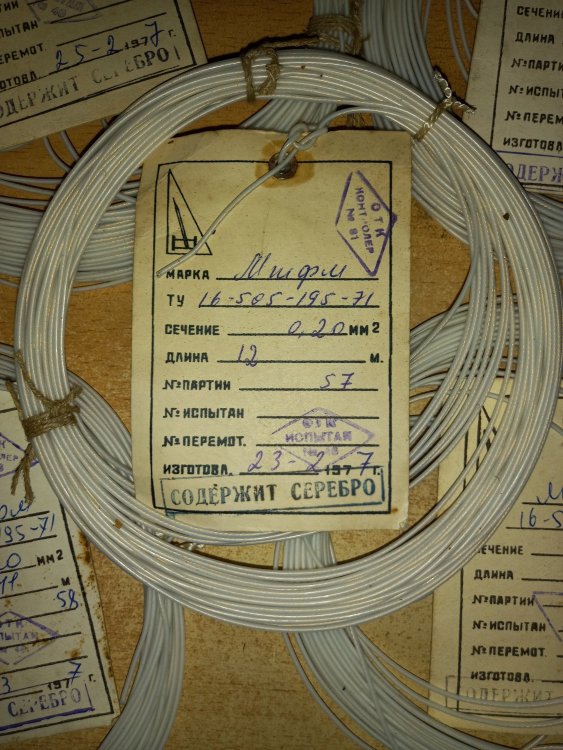 25-2 1977 г.
ИЗГОТОВЛ.
СОДЕРЖИТ СЕРЕБРО
СЕЧЕНИЕ
ДЛИНА
№ПАРТИ
№ИСПЫТАН
№ПЕРЕМОТ.
ИЗГОТОВЛ
СОДЕРЖИ
ОТК
КОНТРОЛЕР
№ 81
МАРКА Мгтфл
ТУ 16-505-195-71
СЕЧЕНИЕ 0,20 мм2
ДЛИНА 12 М.
№ПАРТИИ 57
№ИСПЫТАН
№ПЕРЕМОТ.
ОТК
ИСПЫТАН
ИЗГОТОВЛ. 23-2 1977 г.
СОДЕРЖИТ СЕРЕБРО
195-71
0 мм2
11. М
58
ИСПЫТАН
3 1977
СЕРЕБРО
М
16-5
СЕЧЕНИЕ
ДЛИНА
№ПАРТИИ
№ИСПЫТАН
№ПЕРЕМОТ.
ИЗГОТОВЛ.
СОДЕРЖИТ